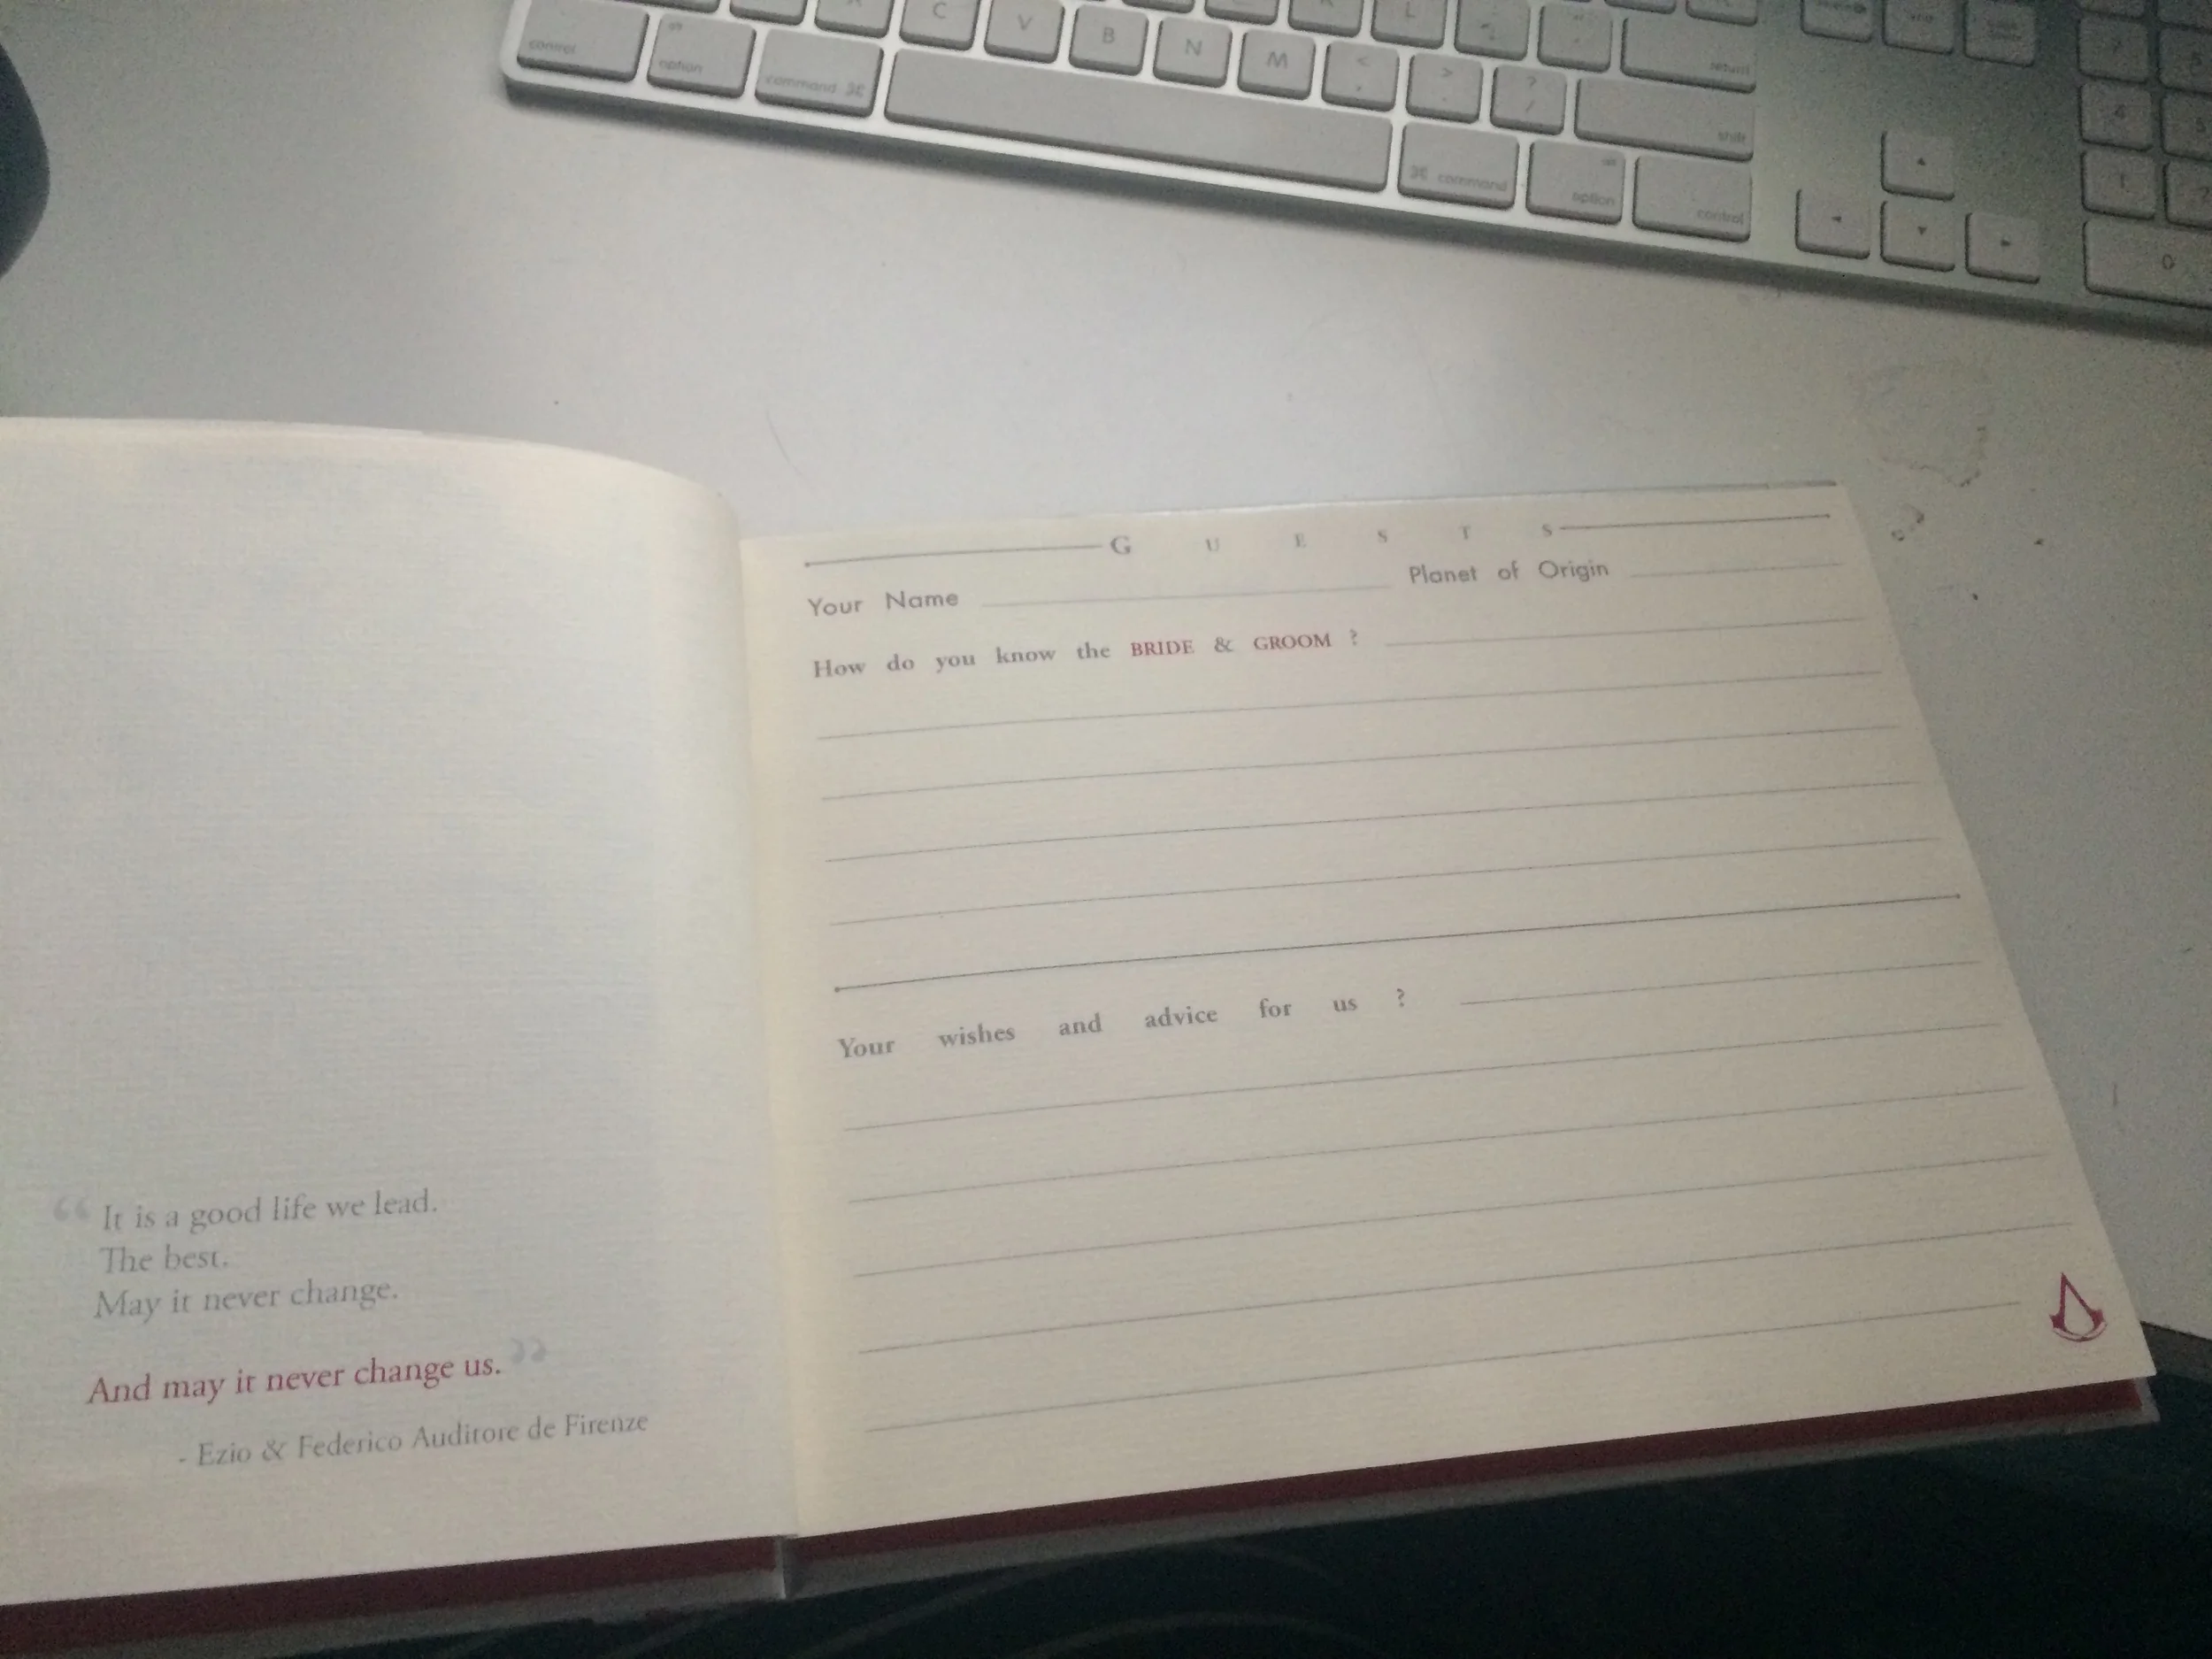 C V B N M < , > . ? /
return
control option command ⌘
⌘ command option control
shift
0
“It is a good life we lead.
The best.
May it never change.
And may it never change us.”
- Ezio & Federico Auditore de Firenze
GUESTS
Your Name Planet of Origin
How do you know the BRIDE & GROOM ?
Your wishes and advice for us ?